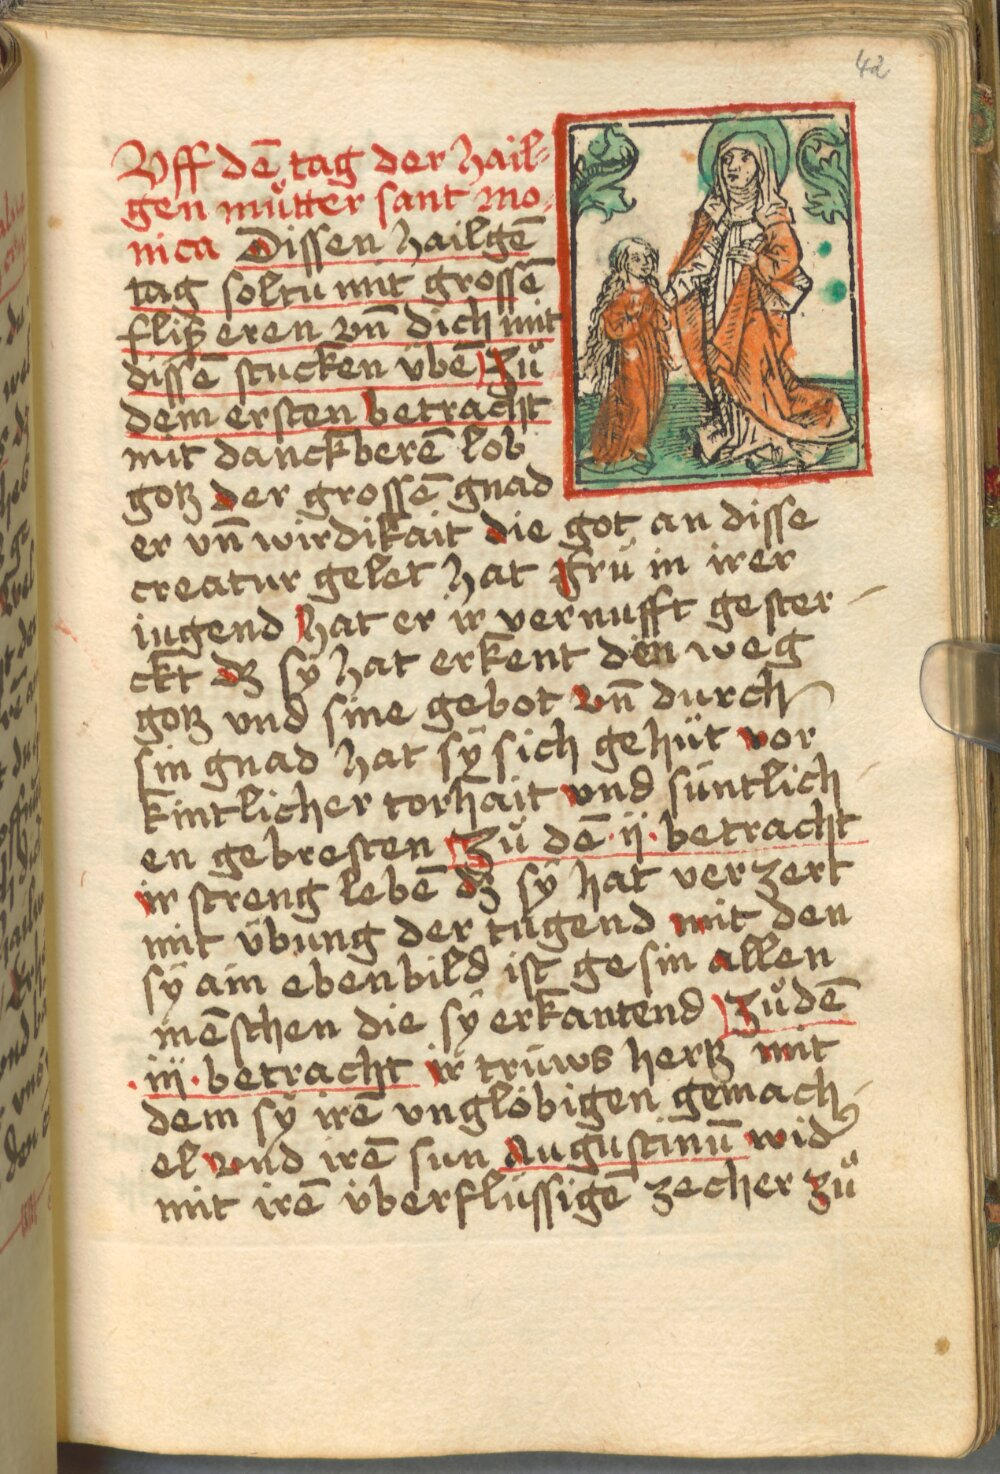 42
Vff dē tag der hail-
gen mu̽tter sant mo-
nica Dissen hailgē
tag soltu mit grossē
fliß eren vn̄ dich mit
dissē stucken übē Zů
dem ersten betracht
mit danckberē lob
gotz der grossē gnad
er vn̄ wirdikait die got an disse
creatur gelet hat frü in irer
iugend hat er ir vernufft gester
ckt dz sÿ hat erkent den weg
gotz vnd sine gebot vn̄ durch
sin gnad hat sÿ sich gehüt vor
kintlicher torhait vnd süntlich
en gebresten Zů dē ·ij· betracht
ir streng lebē dz sÿ hat verzert
mit übung der tugend mit den
sÿ ain ebenbild ist gesin allen
mēschen die sÿ erkantend Zů dē
·iij· betracht ir trüws hertz mit
dem sÿ irē vnglöbigen gemach
el vnd irē sun Augustinū wid
mit irē überflüssigē zecher zů